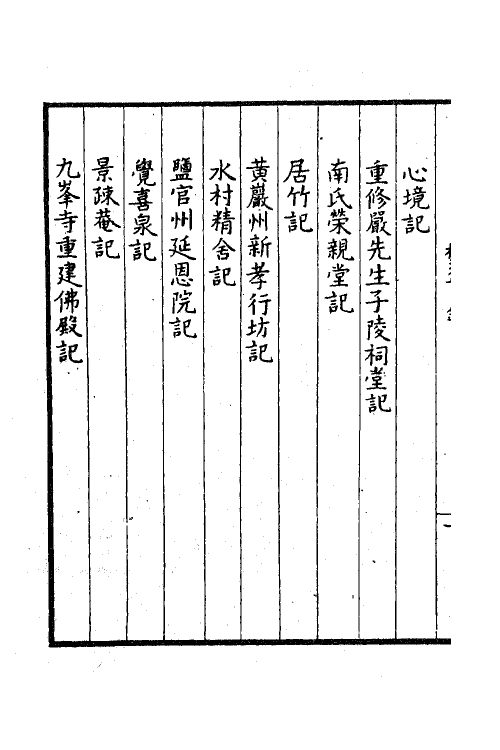 心境記
重修嚴先生子陵祠堂記
南氏榮親堂記
居竹記
黄巖州新孝行坊記
水村精舍記
鹽官州延恩院記
覺喜泉記
景疎菴記
九峯寺重建佛殿記